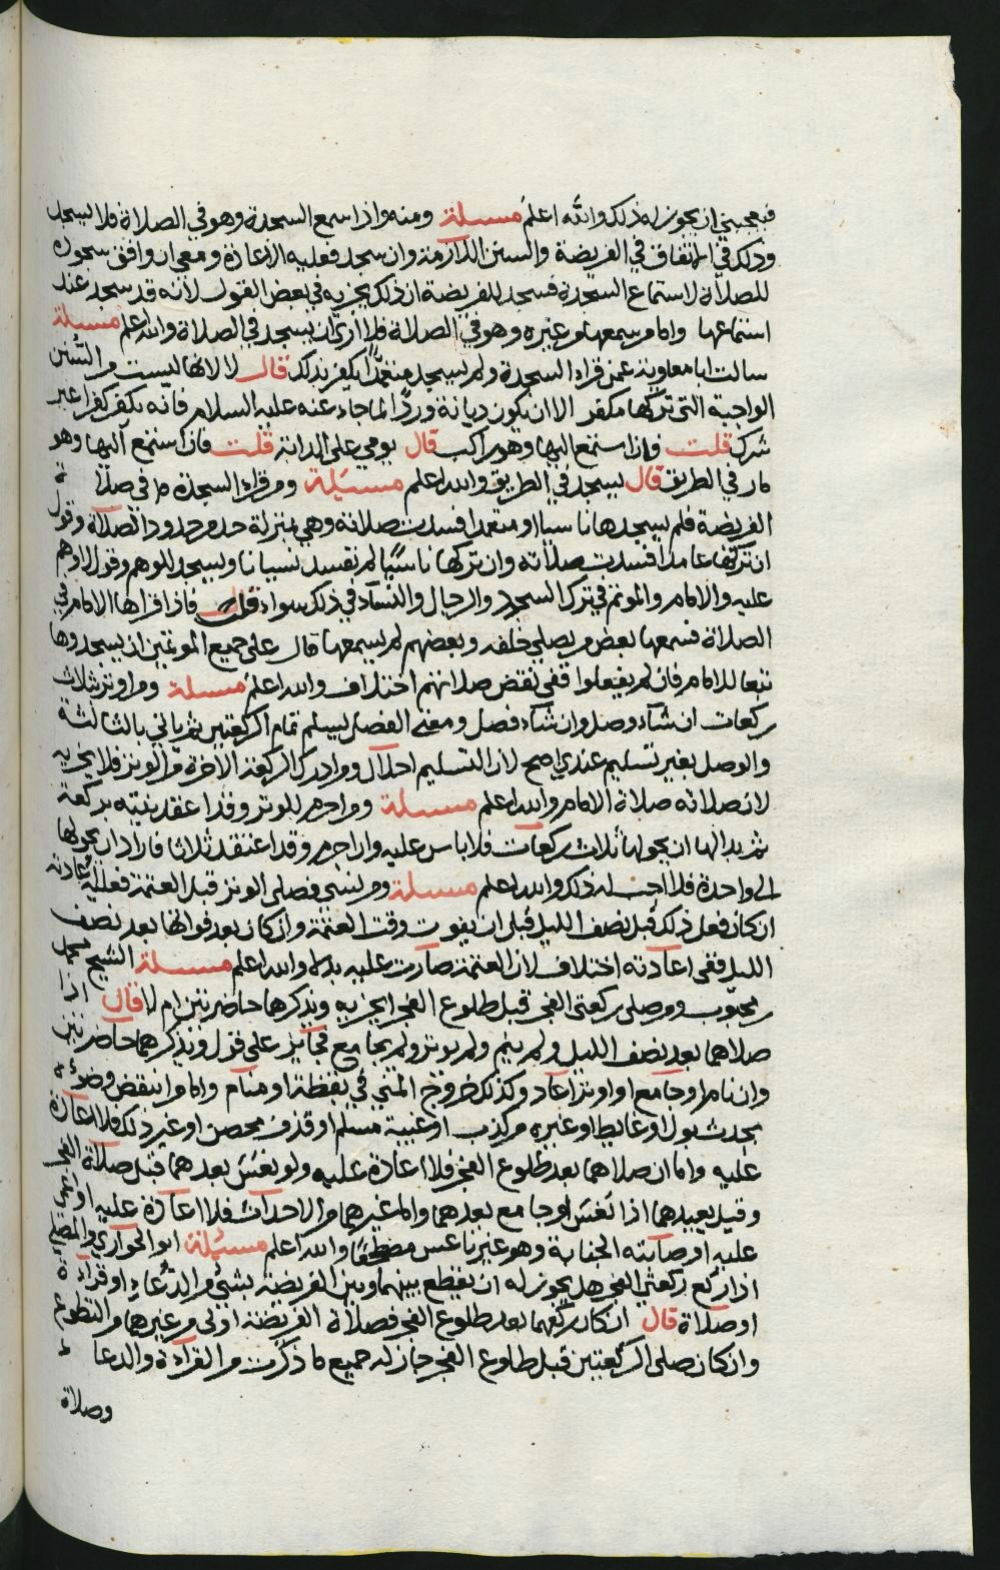 فيعجبني ان يجوز له ذلك والله اعلم مسلة ومنه واذا سمع السجدة وهو في الصلاة فلا يسجد
وذلك في الاتفاق في الفريضة والسنن اللازمة وان سجد فعليه الاعادة ومعي ان وافق سجوده
للصلاة لاستماع السجدة فسجد للفريضة ان ذلك يجزيه في بعض القول لانه قد سجد عند
استماعها واما من سمعها من غيره وهو في الصلاة فلا ارى ان يسجد في الصلاة والله اعلم مسلة
سالت ابا معاوية عمن قراء السجدة ولم يسجد متعمدا ايكفر بذلك قال لا لانها ليست من السنن
الواجبة التي تركها مكفر الا ان يكون ديانة وردا لما جاء عنه عليه السلام فانه يكفر كفرا غير
شرك قلت فان استمع اليها وهو راكب قال يومي على الدابة قلت فان استمع اليها وهو
مار في الطريق قال يسجد في الطريق والله اعلم مسئلة ومن قراء السجدة في صلاة
الفريضة فلم يسجدها ناسيا او متعمدا فسدت صلاته وهي بمنزلة حد من حدود الصلاة وقول
ان تركها عامدا فسدت صلاته وان تركها ناسيا لم تفسد نسيانا ويسجد للوهم وقول لا وهم
عليه والامام والموتم في ترك السجود والرجال والنساء في ذلك سواء قلت فاذا قراها الامام في
الصلاة فسمعها بعض من يصلي خلفه وبعضهم لم يسمعها قال على جميع الموتمين ان يسجدوها
تبعا للامام فان لم يفعلوا ففي نقض صلاتهم اختلاف والله اعلم مسلة ومن اوتر بثلاث
ركعات ان شاء وصل وان شاء فصل ومعنى الفصل يسلم تمام الركعتين ثم ياتي بالثالثة
والوصل بغير تسليم عندي اصح لان التسليم احلال ومن ادرك الركعة الاخرة من الوتر فلا يجزيه
لان صلاته صلاة الامام والله اعلم مسلة ومن احرم للوتر وقد اعقد بنيته بركعة
ثم بدا لها ان يحولها ثلاث ركعات فلا باس عليه وان احرم وقد اعتقد ثلاثا فاراد ان يحولها
الى واحدة فلا احب له ذلك والله اعلم مسلة ومن نسي فصلى الوتر قبل العتمة فعليه اعادته
ان كان فعل ذلك قبل نصف الليل قبل ان يفوت وقت العتمة وان كان بعد فواتها بعد نصف
الليل ففي اعادته اختلاف لان العتمة صارت عليه بدلا والله اعلم مسلة الشيخ محمد
محبوب ومن صلى ركعتي الفجر قبل طلوع الفجر ايجزيه ويذكرها حاضرتين ام لا قال اذا
صلاهما بعد نصف الليل ولم ينم ولم يوتر ولم يجامع فجائز على قول ويذكرهما حاضرتين
وان نام او جامع او اوتر اعاد وكذلك خروج المني في يقظة او منام واما من انتقض وضوءه
بحدث بول او غايط او غيره من كذب او غيبة مسلم او قذف محصن او غير ذلك فلا اعادة
عليه واما ان صلاهما بعد طلوع الفجر فلا اعادة عليه ولو نعس بعدهما قبل صلاة الفجر
وقيل يعيدهما اذا نعس او جامع بعدهما واما غيرهما من الاحداث فلا اعادة عليه او
عليه او صابته الجنابة وهو غير ناعس مضطجعا والله اعلم مسئلة ابو الحواري والمصلي
اذا ركع ركعتي الفجر هل يجوز له ان يقطع بينهما وبين الفريضة بشئ من الدعاء او قراءة
او صلاة قال ان كان ركعهما بعد طلوع الفجر فصلاة الفريضة اولى من غيرهما من التطوع
وان كان صلى الركعتين قبل طلوع الفجر جاز له جميع ما ذكرت من القراءة والدعا
وصلاة